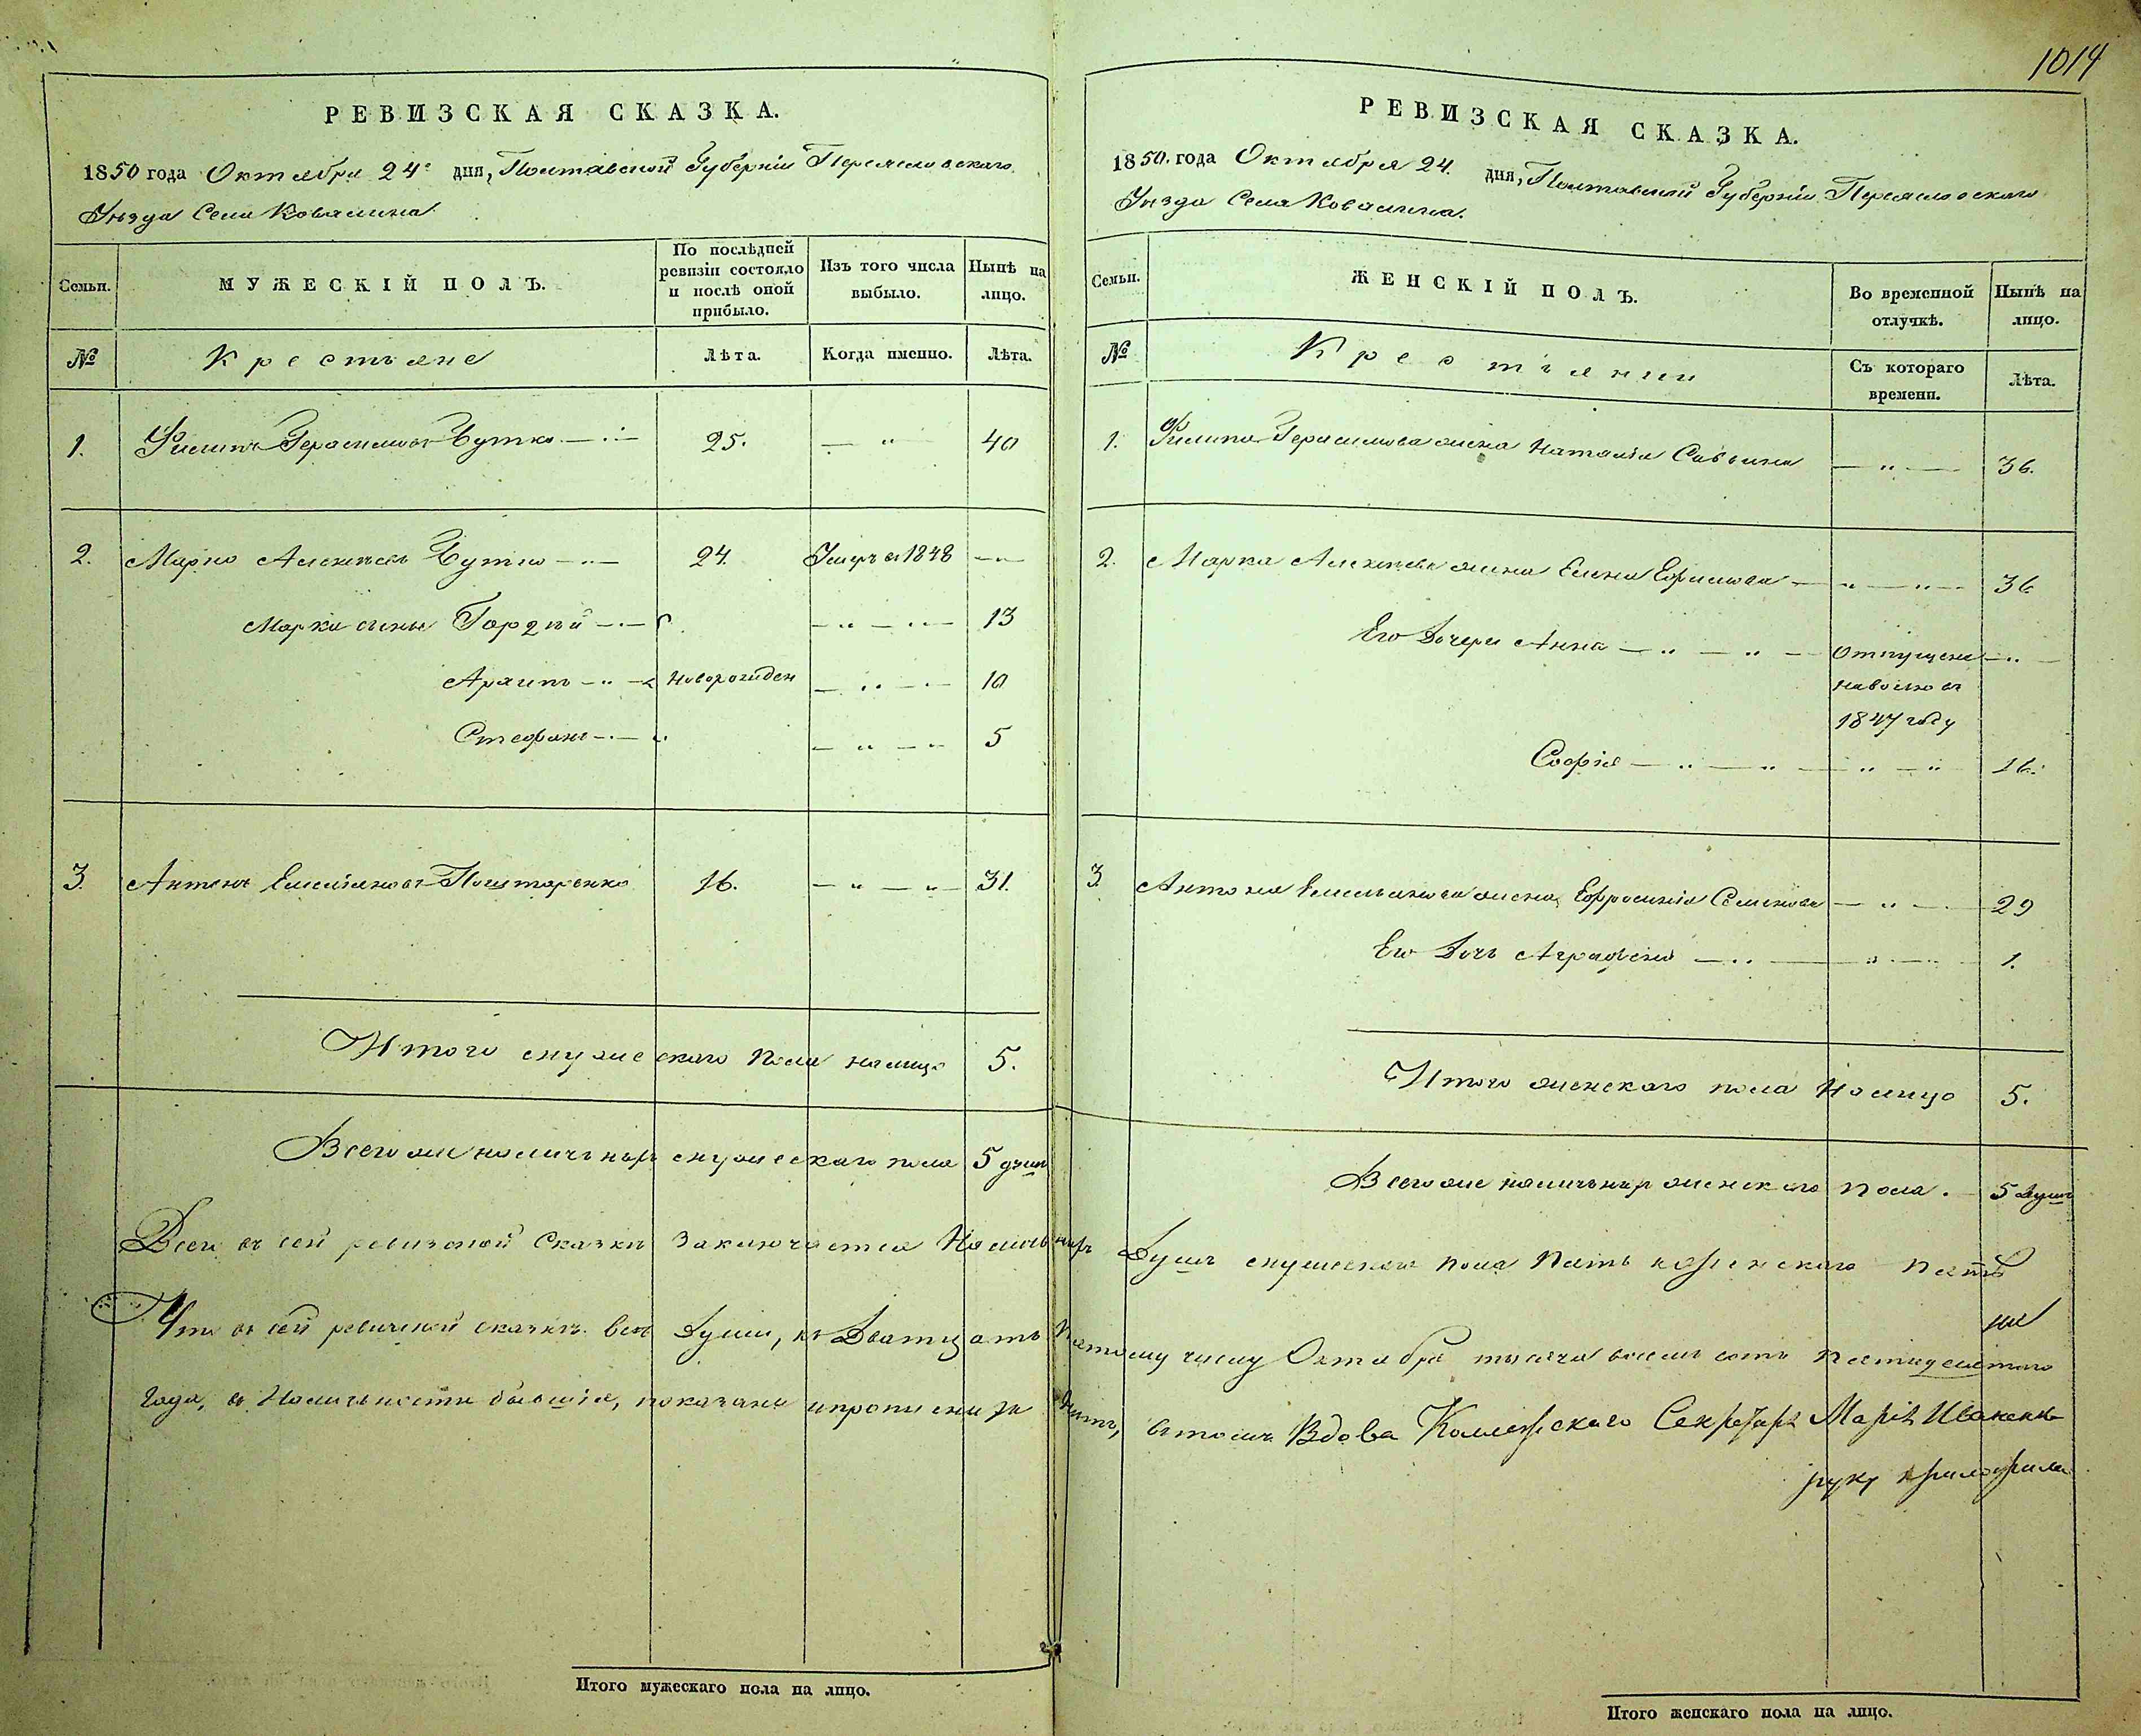 1014
РЕВИЗСКАЯ СКАЗКА.
1850 года Октября 24го дня, Полтавской Губерніи Переяславскаго
Уѣзда Села Ковалина.
Семьи.
МУЖЕСКІЙ ПОЛЪ.
По послѣдней ревизіи состояло и послѣ оной прибыло.
Изъ того числа выбыло.
Нынѣ на лицо.
№
Крестьяне
Лѣта.
Когда именно.
Лѣта.
1. Филипъ Герасимовъ Чутко — 25. — " 40
2. Марко Алексѣевъ Чутко — " — 24. Умеръ въ 1848 — " —
Марка сыны Гордѣй — " — — " — " — 13
Архипъ — " — новорожден — " — " — 10
Стефанъ — " — — " — " 5
3. Антонъ Емельяновъ Пошторенко 16. — " — " — 31.
Итого мужескаго пола налицо 5.
Всего же наличныхъ мужескаго пола 5 душъ
РЕВИЗСКАЯ СКАЗКА.
1850. года Октября 24. дня, Полтавской Губерніи Переяславскаго
Уѣзда Села Ковалина.
Семьи.
ЖЕНСКІЙ ПОЛЪ.
Во временной отлучкѣ.
Нынѣ на лицо.
№
Крестьянки
Съ котораго времени.
Лѣта.
1. Филипа Герасимова жена Наталія Саввина — " — 36.
2. Марка Алексѣева жена Елена Ефимова — " — " — 36
Его Дочери Анна — " — " — Отпущена — " —
на волю въ
1847 году
Софія — " — " — " — " 16.
3 Антона Емельянова жена, Ефросинія Семенова — " — 29
Его Дочь Аграфена — " — " — 1.
Итого женскаго пола Налицо 5.
Всего же наличныхъ женскаго пола. 5 Душъ
Всехъ въ сей ревизской Сказкѣ Заключается Наличныхъ Душъ мужескаго пола Пять женскаго пять
Что въ сей ревизской сказкѣ всѣ Души, къ Двадцать Пятому числу Октября тысяча восемь сотъ пятидесятаго
Года, въ Наличности бывшія, показаны и прописныхъ нѣтъ, въ томъ Вдова Коллежскаго Секретаря Марія Иваненко
руку приложила
Итого мужескаго пола на лицо.
Итого женскаго пола на лицо.